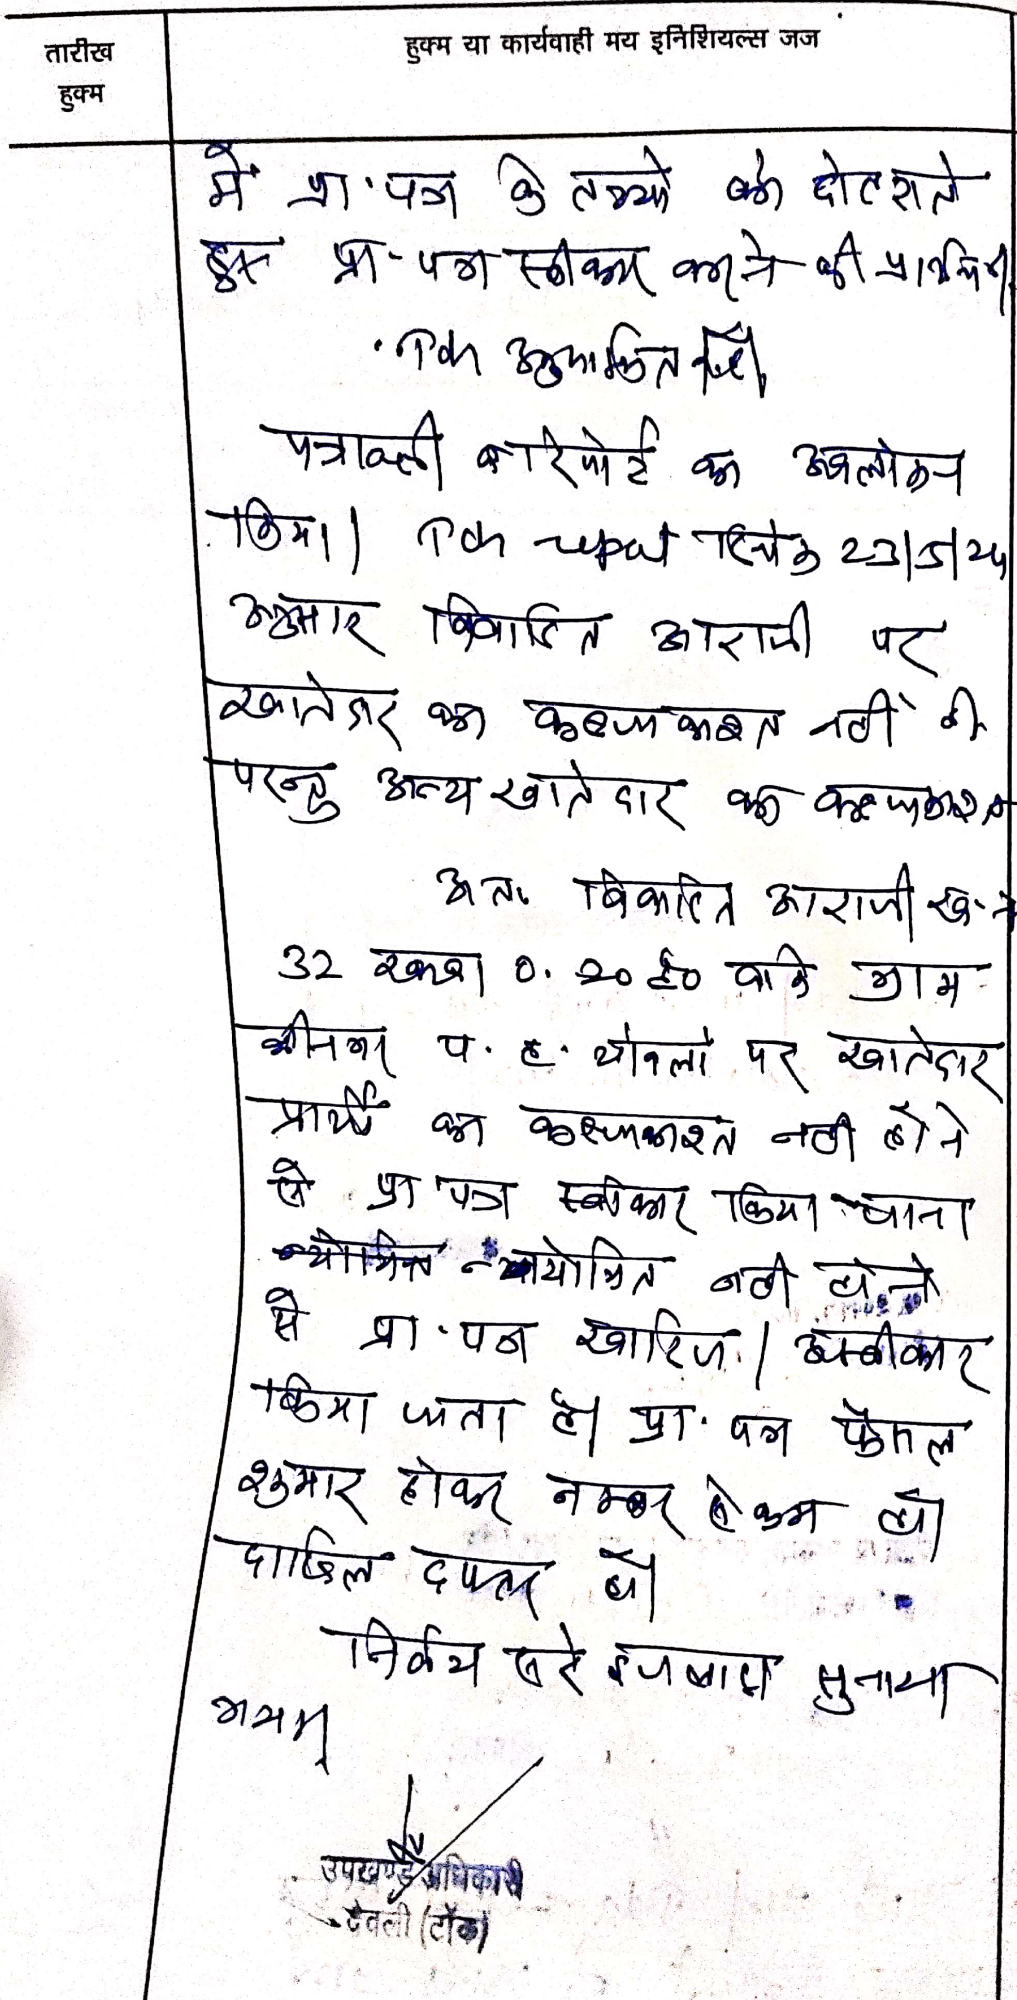 तारीख
हुक्म
हुक्म या कार्यवाही मय इनिशियल्स जज
में प्रा.पत्र के तथ्यों को दोहराते
हुए प्रा.पत्र स्वीकार करने की
अनुपस्थित
पत्रावली रिपोर्ट का अवलोकन
किया। दिनांक 23/5/24
अनुसार विवादित आराजी पर
खातेदार का कब्जाकाश्त नहीं है
परन्तु अन्य खातेदार का कब्जाकाश्त
अतः विवादित आराजी ख.न
32 रकबा 0.20 है0 वाके ग्राम
प.ह. पर खातेदार
प्रार्थी का कब्जाकाश्त नही होने
से प्रा.पत्र स्वीकार किया जाना
न्यायोचित नही होने
से प्रा.पत्र खारिज / अस्वीकार
किया जाता है। प्रा.पत्र फैसल
शुमार होकर नम्बर से कम हो।
दाखिल दफ्तर हो।
निर्णय सरे इजलास सुनाया
गया।
उपखण्ड अधिकारी
देवली (टोंक)